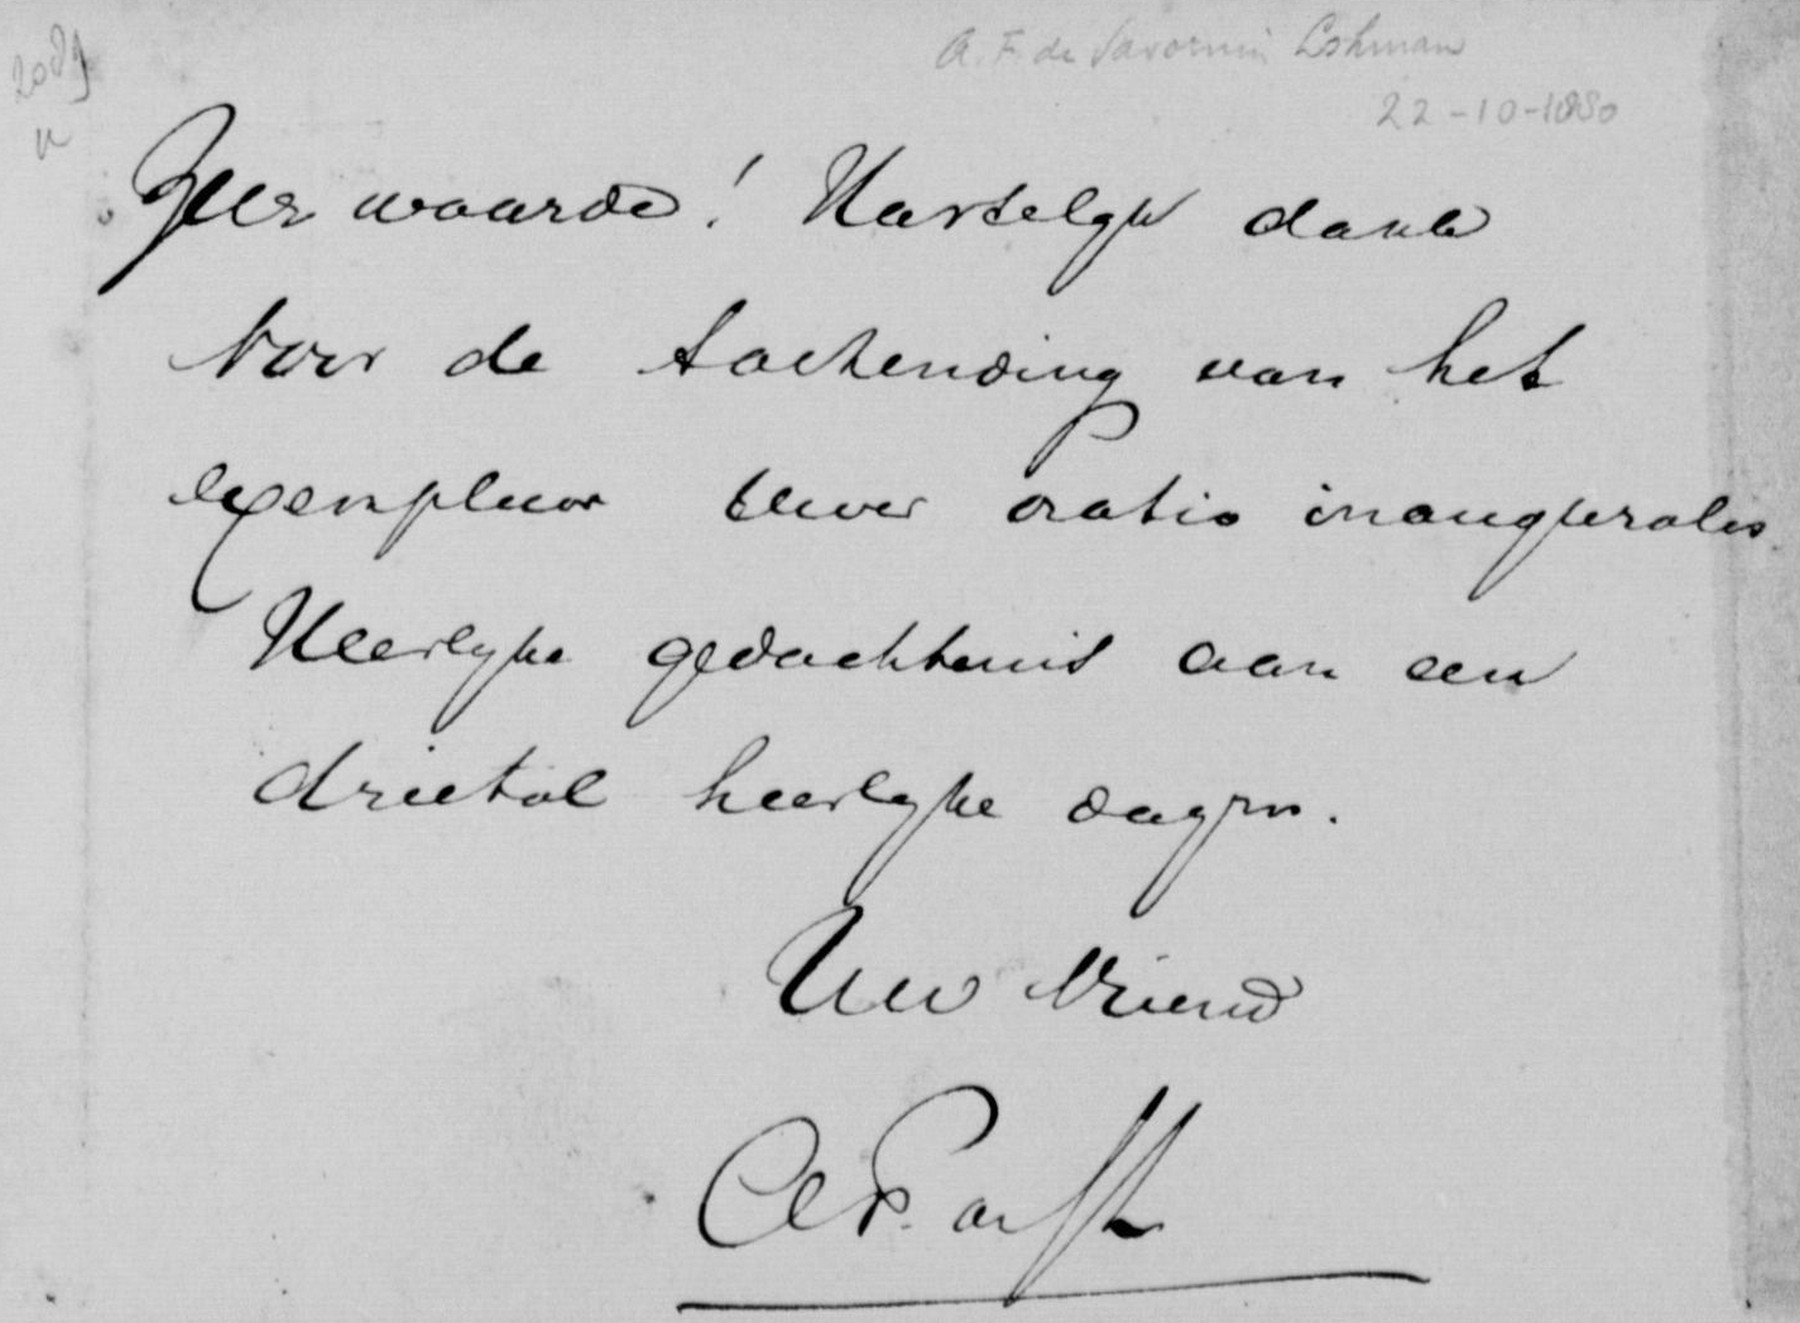 2089
A. F. de Savornin Lohman
22-10-1880
Zeer waarde! Hartelyk dank
voor de toezending van het
exemplaar Uwer oratio inauguralis
Heerlyke gedachtenis aan een
drietal heerlyke dagen.
Uw Vriend